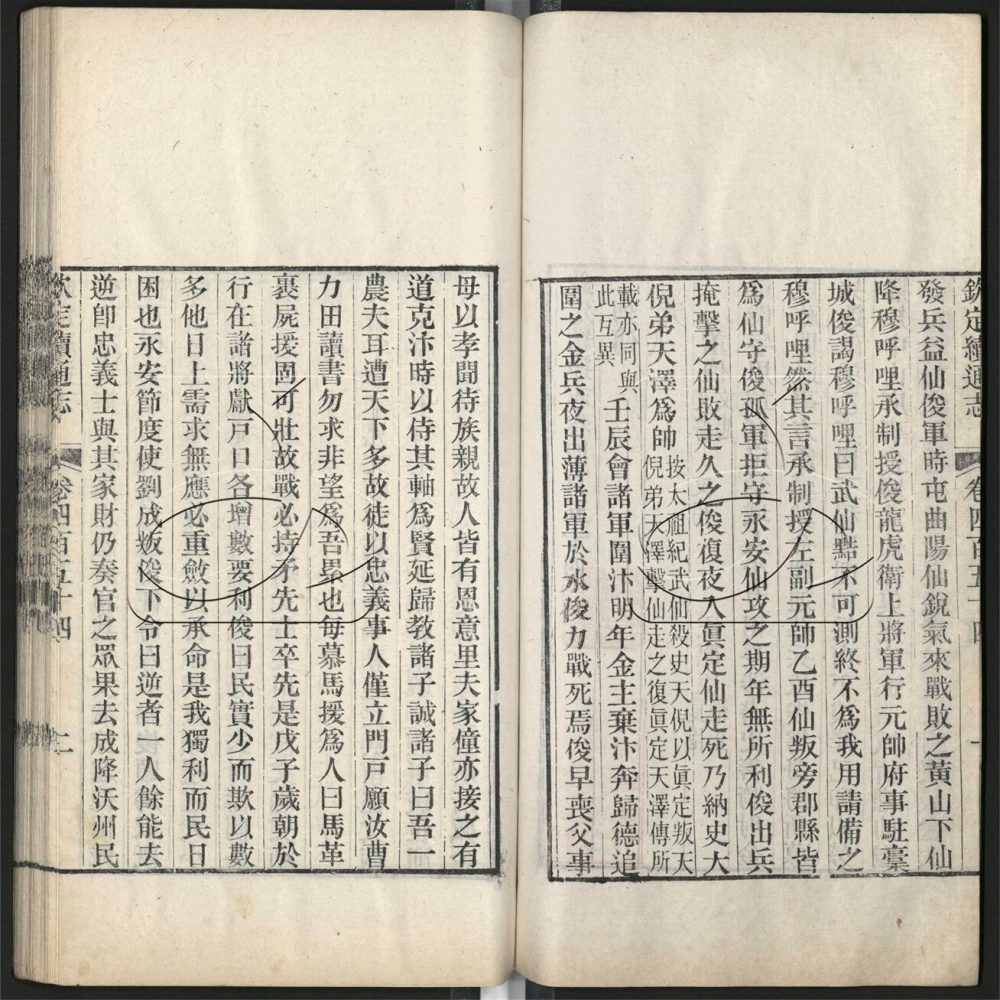 欽定續通志
卷四百五十四
一
發兵益仙俊軍時屯曲陽仙銳氣來戰敗之黃山下仙
降穆呼哩承制授俊龍虎衛上將軍行元帥府事駐槀
城俊謁穆呼哩曰武仙黠不可測終不爲我用請備之
穆呼哩然其言承制授左副元帥乙酉仙叛旁郡縣皆
爲仙守俊孤軍拒守永安仙攻之期年無所利俊出兵
掩擊之仙敗走久之俊復夜入眞定仙走死乃納史大
倪弟天澤爲帥
按太祖紀武仙殺史天倪以眞定叛天
倪弟天澤擊仙走之復眞定天澤傳所
載亦同與
此互異
壬辰會諸軍圍汴明年金主棄汴奔歸德追
圍之金兵夜出薄諸軍於水俊力戰死焉俊早喪父事
母以孝聞待族親故人皆有恩意里夫家僮亦接之有
道克汴時以侍其軸爲賢延歸教諸子誡諸子曰吾一
農夫耳遭天下多故徒以忠義事人僅立門戸願汝曹
力田讀書勿求非望爲吾累也每慕馬援爲人曰馬革
裹屍援固可壯故戰必持矛先士卒先是戊子歲朝於
行在諸將獻戸口各增數要利俊曰民實少而欺以數
多他日上需求無應必重斂以承命是我獨利而民日
困也永安節度使劉成叛俊下令曰逆者一人餘能去
逆卽忠義士與其家財仍奏官之眾果去成降沃州民
欽定續通志
卷四百五十四
二